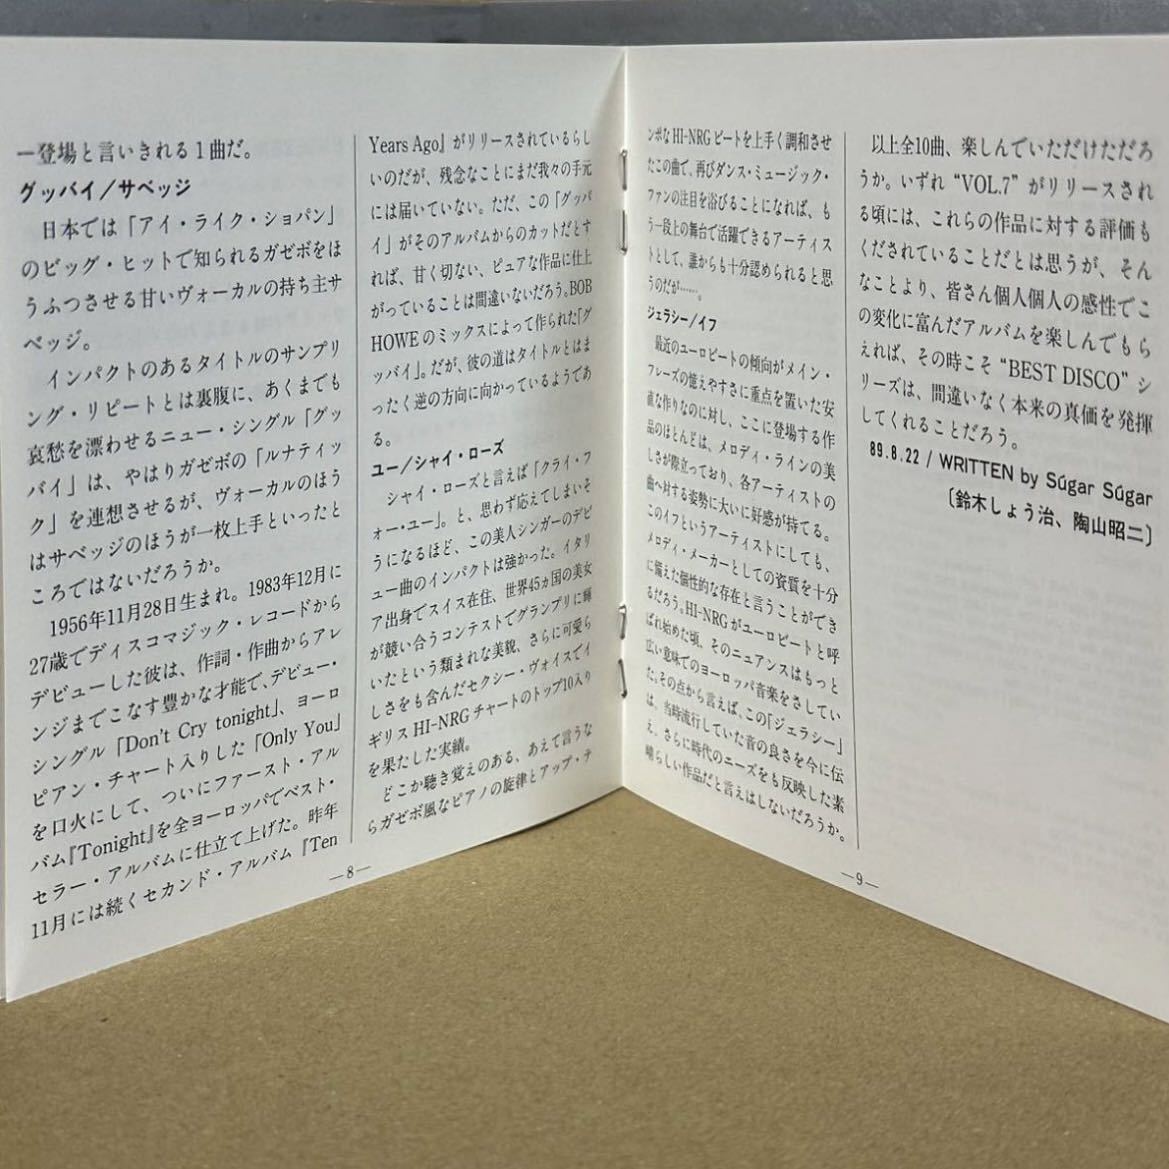 ー登場と言いきれる1曲だ。
グッバイ／サベッジ
日本では「アイ・ライク・ショパン」
のビッグ・ヒットで知られるガゼボをほ
うふつさせる甘いヴォーカルの持ち主サ
ベッジ。
インパクトのあるタイトルのサンプリ
ング・リピートとは裏腹に、あくまでも
哀愁を漂わせるニュー・シングル「グッ
バイ」は、やはりガゼボの「ルナティッ
ク」を連想させるが、ヴォーカルのほう
はサベッジのほうが一枚上手といったと
ころではないだろうか。
1956年11月28日生まれ。1983年12月に
27歳でディスコマジック・レコードから
デビューした彼は、作詞・作曲からアレ
ンジまでこなす豊かな才能で、デビュー・
シングル「Don't Cry tonight」、ヨーロ
ピアン・チャート入りした「Only You」
を口火にして、ついにファースト・アル
バム『Tonight』を全ヨーロッパでベスト・
セラー・アルバムに仕立て上げた。昨年
11月には続くセカンド・アルバム『Ten
—8—
Years Ago』がリリースされているらし
いのだが、残念なことにまだ我々の手元
には届いていない。ただ、この「グッバ
イ」がそのアルバムからのカットだとす
れば、甘く切ない、ピュアな作品に仕上
がっていることは間違いないだろう。BOB
HOWEのミックスによって作られた「グ
ッバイ」。だが、彼の道はタイトルとはま
ったく逆の方向に向かっているようであ
る。
ユー／シャイ・ローズ
シャイ・ローズと言えば「クライ・フ
ォー・ユー」。と、思わず応えてしまいそ
うになるほど、この美人シンガーのデビ
ュー曲のインパクトは強かった。イタリ
ア出身でスイス在住、世界45ヵ国の美女
が競い合うコンテストでグランプリに輝
いたという類まれな美貌、さらに可愛ら
しさをも含んだセクシー・ヴォイスでイ
ギリスHI-NRGチャートのトップ10入り
を果たした実績。
どこか聴き覚えのある、あえて言うな
らガゼボ風なピアノの旋律とアップ・テ
ンポなHI-NRGビートを上手く調和させ
たこの曲で、再びダンス・ミュージック・
ファンの注目を浴びることになれば、も
う一段上の舞台で活躍できるアーティス
トとして、誰からも十分認められると思
うのだが……。
ジェラシー／イフ
最近のユーロビートの傾向がメイン・
フレーズの憶えやすさに重点を置いた安
直な作りなのに対し、ここに登場する作
品のほとんどは、メロディ・ラインの美
しさが際立っており、各アーティストの
曲へ対する姿勢に大いに好感が持てる。
このイフというアーティストにしても、
メロディ・メーカーとしての資質を十分
に備えた個性的な存在と言うことができ
るだろう。HI-NRGがユーロビートと呼
ばれ始めた頃、そのニュアンスはもっと
広い意味でのヨーロッパ音楽をさしてい
た。その点から言えば、この「ジェラシー」
は、当時流行していた音の良さを今に伝
え、さらに時代のニーズをも反映した素
晴らしい作品だと言えはしないだろうか。
—9—
以上全10曲、楽しんでいただけただろ
うか。いずれ“VOL.7”がリリースされ
る頃には、これらの作品に対する評価も
くだされていることだとは思うが、そん
なことより、皆さん個人個人の感性でこ
の変化に富んだアルバムを楽しんでもら
えれば、その時こそ“BEST DISCO”シ
リーズは、間違いなく本来の真価を発揮
してくれることだろう。
89.8.22 / WRITTEN by Súgar Súgar
〔鈴木しょう治、陶山昭二〕